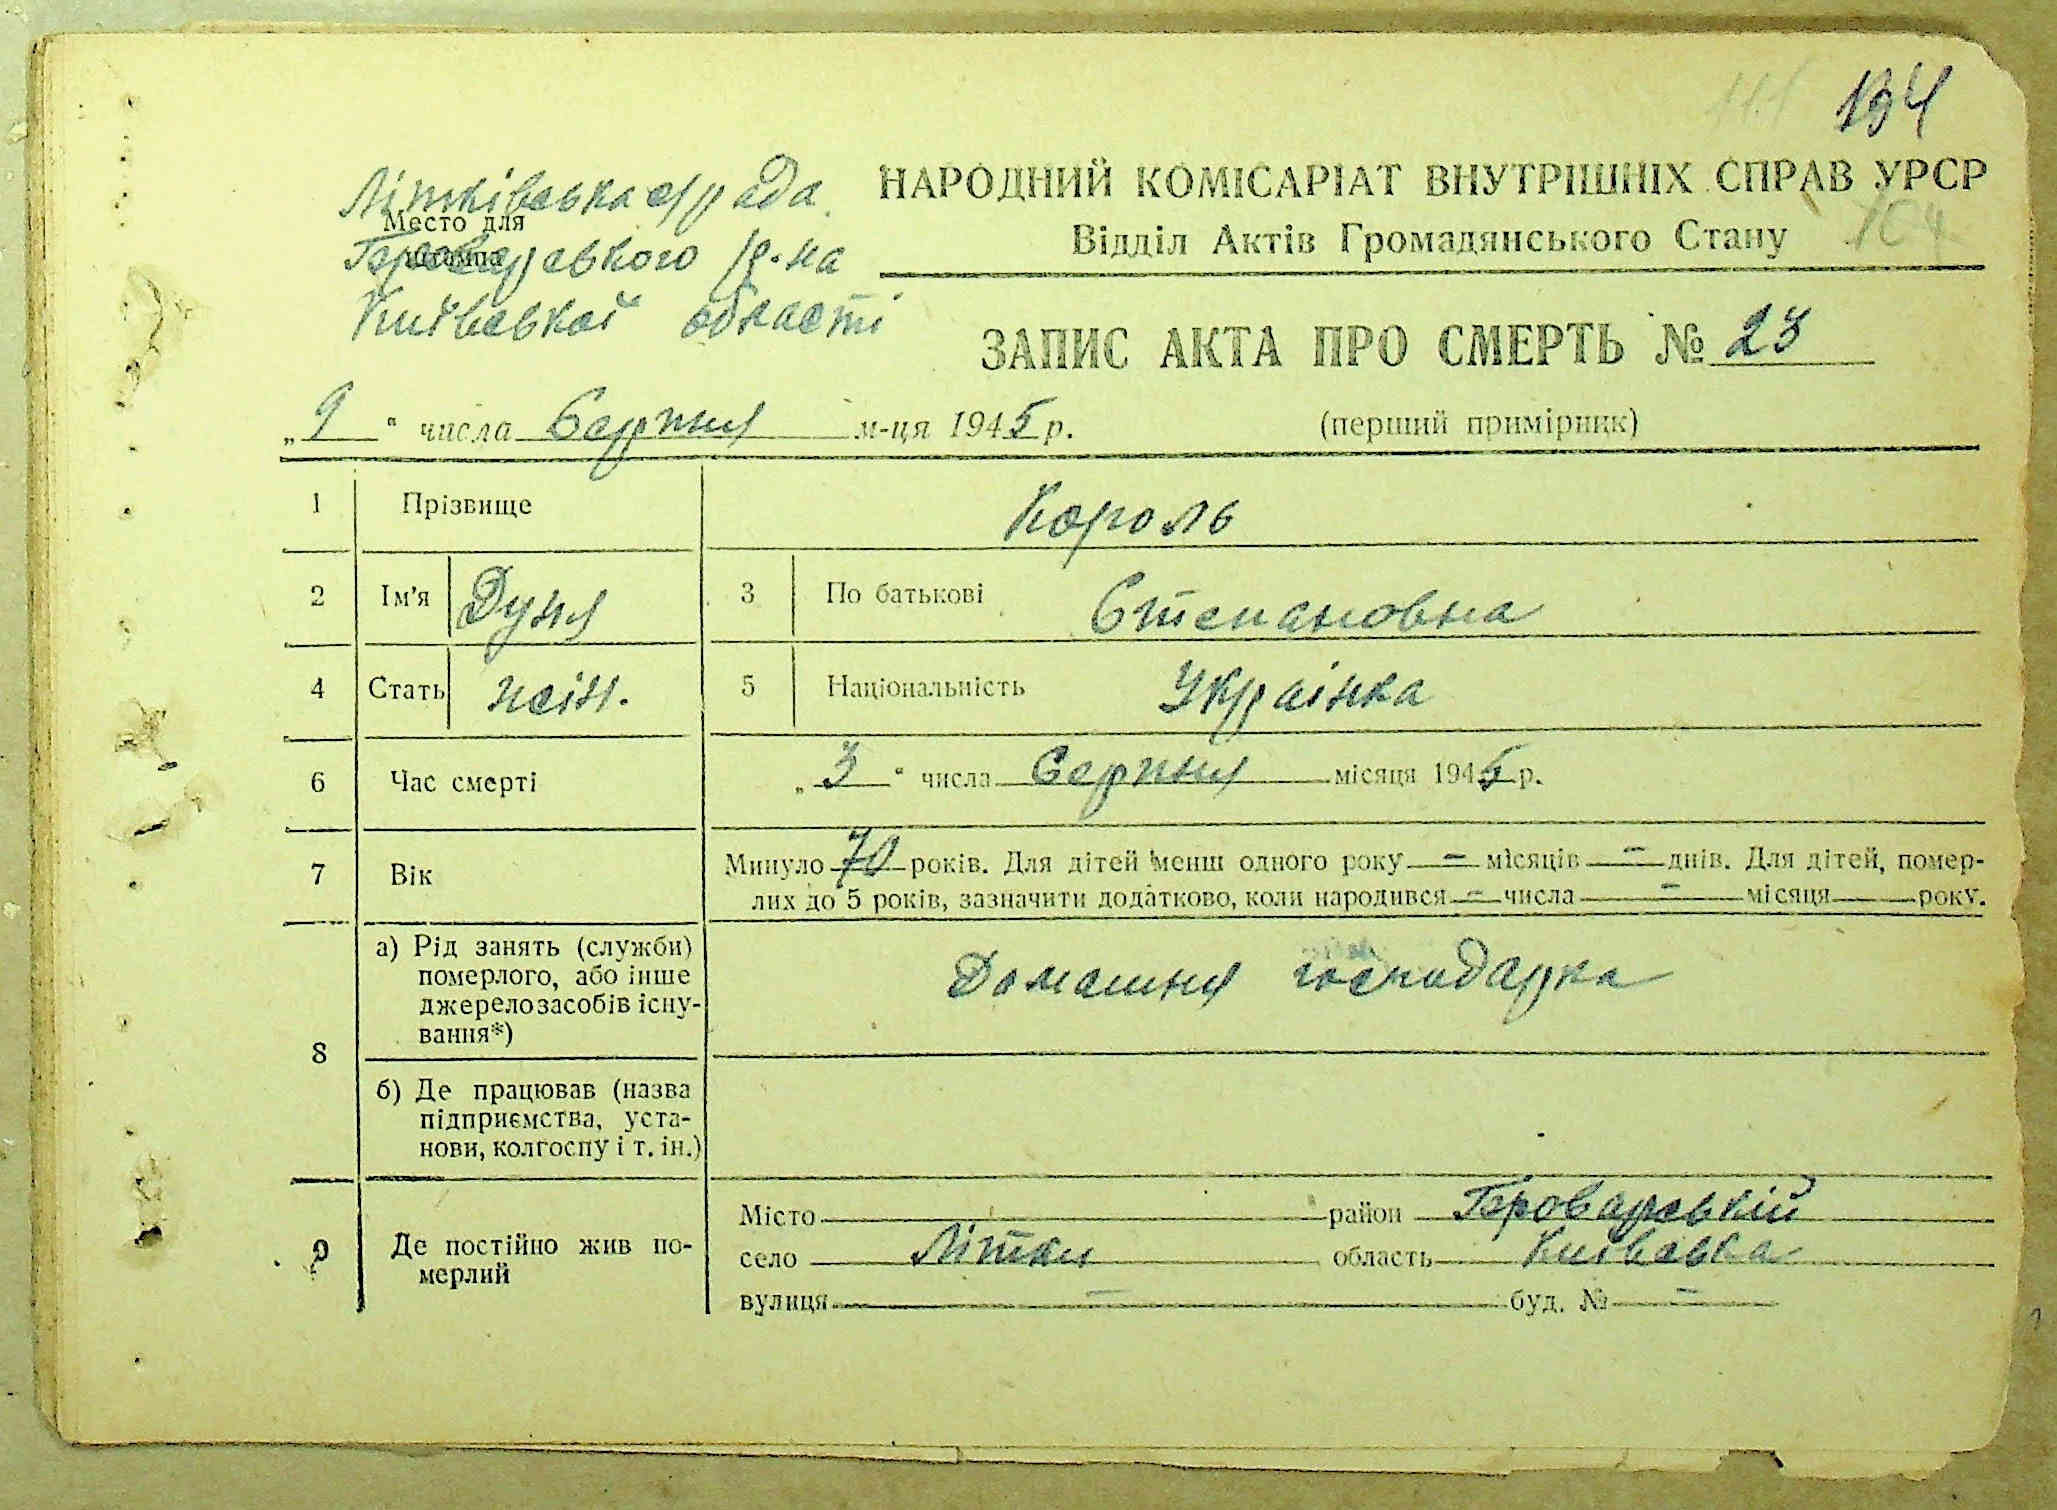 134
НАРОДНИЙ КОМІСАРІАТ ВНУТРІШНІХ СПРАВ УРСР
Відділ Актів Громадянського Стану
104
Літківська с/рада
Место для
штампа
Броварського р-на
Київської області
ЗАПИС АКТА ПРО СМЕРТЬ № 23
„ 9 “ числа Серпня м-ця 1945 р.
(перший примірник)
1 Прізвище Король
2 Ім'я Дуня 3 По батькові Степановна
4 Стать жін. 5 Національність Українка
6 Час смерті „ 3 “ числа Серпня місяця 1945 р.
7 Вік Минуло 70 років. Для дітей менш одного року – місяців – днів. Для дітей, помер-
лих до 5 років, зазначити додатково, коли народився – числа – місяця року.
8 а) Рід занять (служби)
померлого, або інше
джерело засобів існу-
вання*)
Домашня господарка
б) Де працював (назва
підприємства, уста-
нови, колгоспу і т. ін.)
9 Де постійно жив по-
мерлий
Місто район Броварській
село Літки область Київська
вулиця – буд. № –